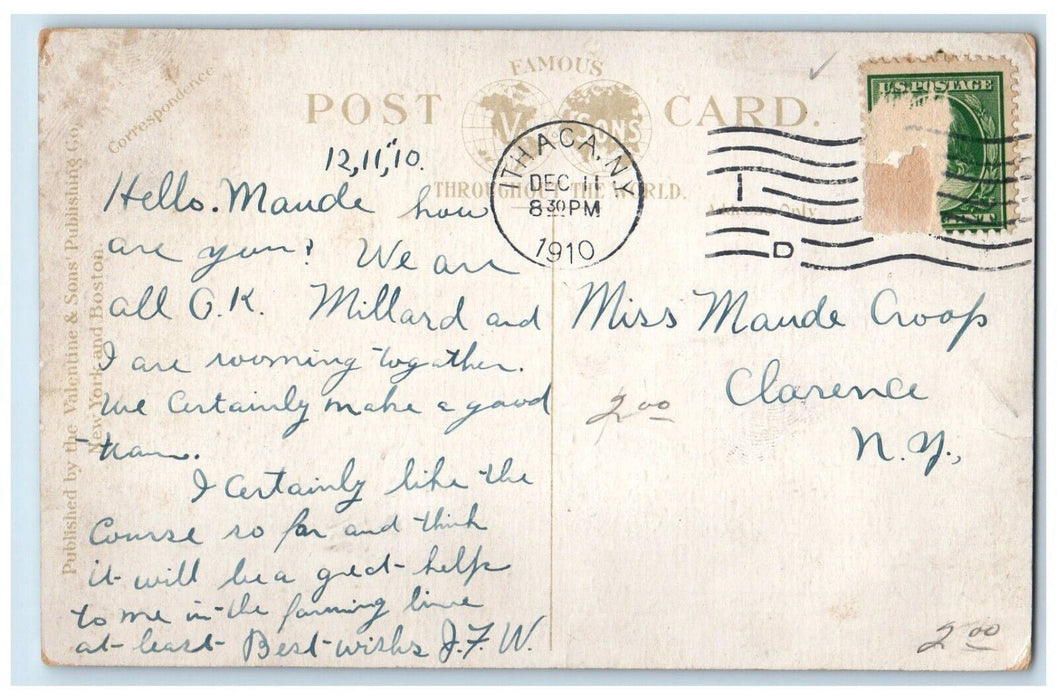 FAMOUS
POST CARD.
V & SONS
THROUGHOUT THE WORLD.
Correspondence
Address Only
Published by the Valentine & Sons' Publishing Co.,
New York and Boston.
U.S. POSTAGE
CENT
ITHACA, N.Y.
DEC 11
8 30 PM
1910
1
D
12,11,"10.
Hello. Maude how
are you? We are
all O.K. Millard and
I are rooming together.
We Certainly make a good
team.
I Certainly like the
Course so far and think
it will be a great help
to me in the farming line
at least Best wishs J.F.W.
Miss Maude Croop
Clarence
N.Y.,
2 00
2 00